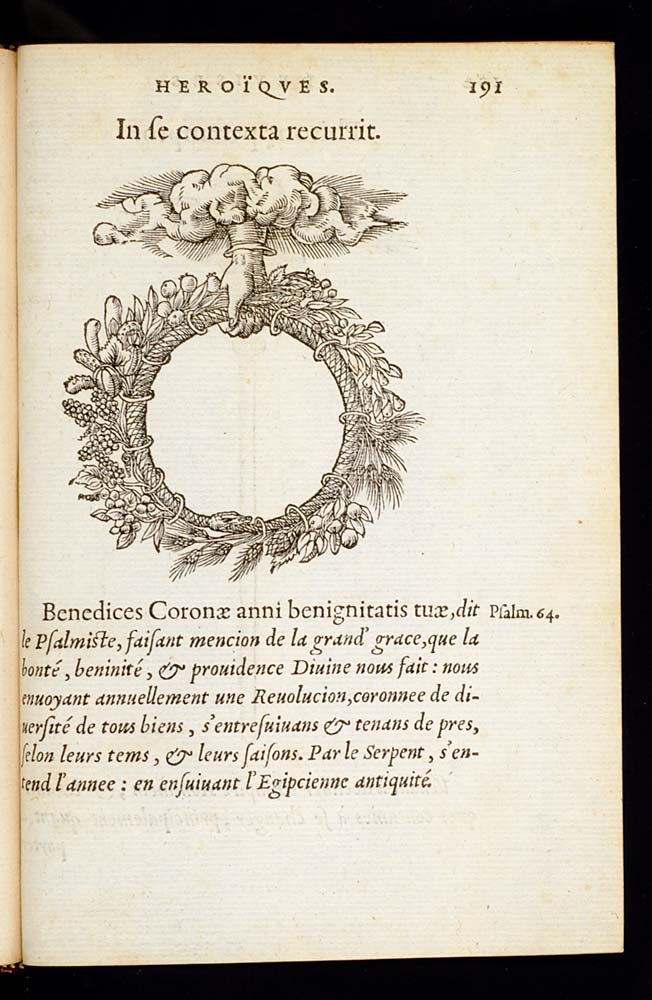 HEROÏQVES. 191
In ſe contexta recurrit.
Benedices Coronæ anni benignitatis tuæ, dit Pſalm. 64.
le Pſalmiſte, faiſant mencion de la grand' grace, que la
bonté, beninité, & prouidence Diuine nous fait : nous
enuoyant annuellement une Reuolucion, coronnee de di-
uerſité de tous biens, s'entreſuiuans & tenans de pres,
ſelon leurs tems, & leurs ſaiſons. Par le Serpent, s'en-
tend l'annee : en enſuiuant l'Egipcienne antiquité.